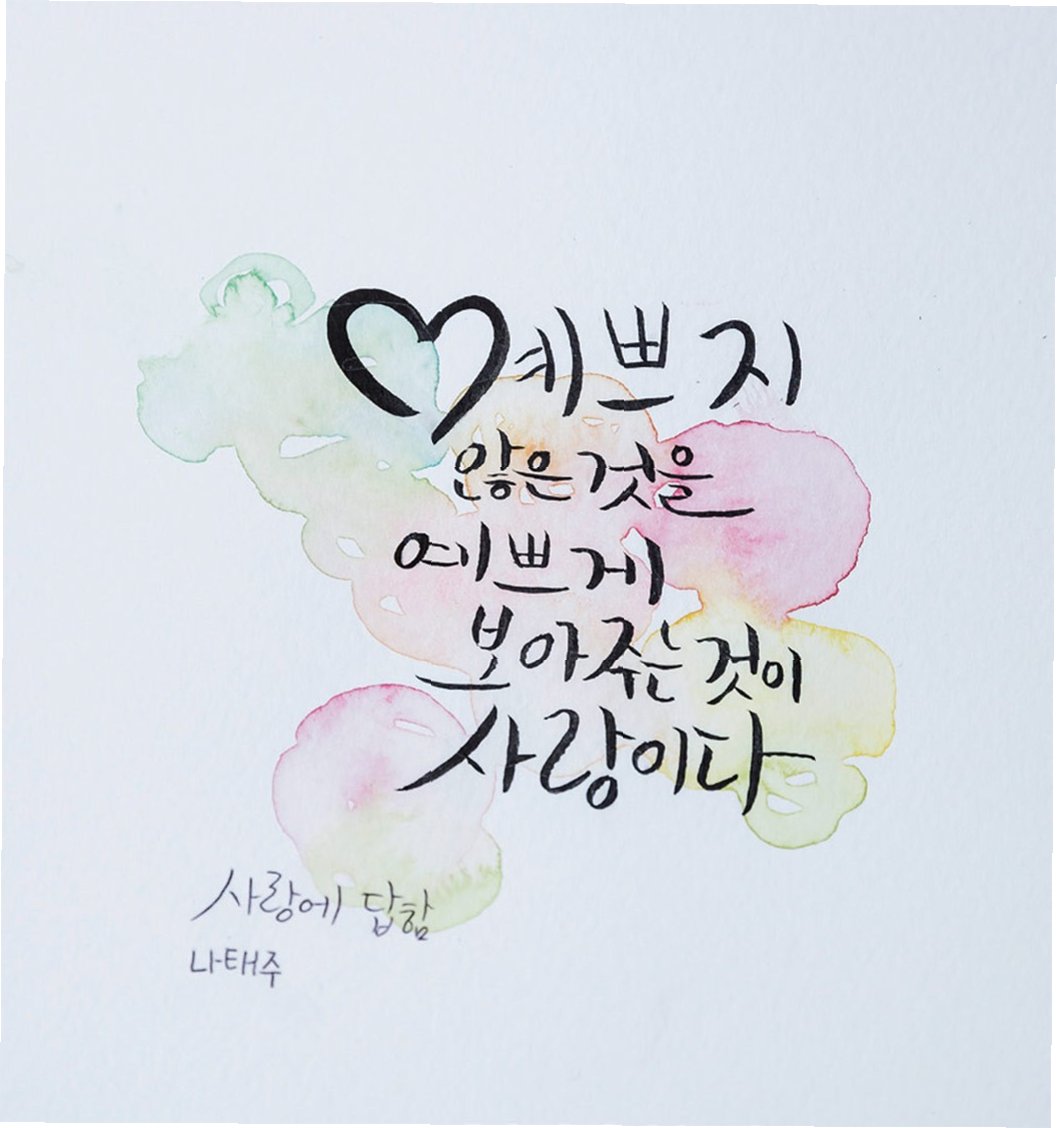 예쁘지
않은 것을
예쁘게
보아 주는 것이
사랑이다
사랑에 답함
나태주